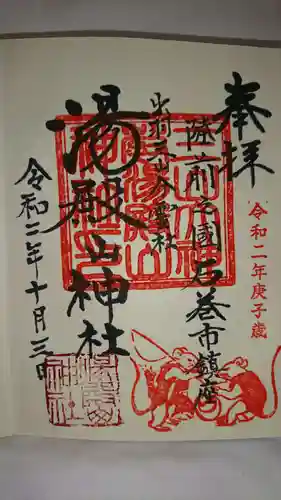 奉拝
令和二年庚子歳
陸前之國石巻市鎮座
出羽三山分霊社
湯殿山神社
令和二年十月三日